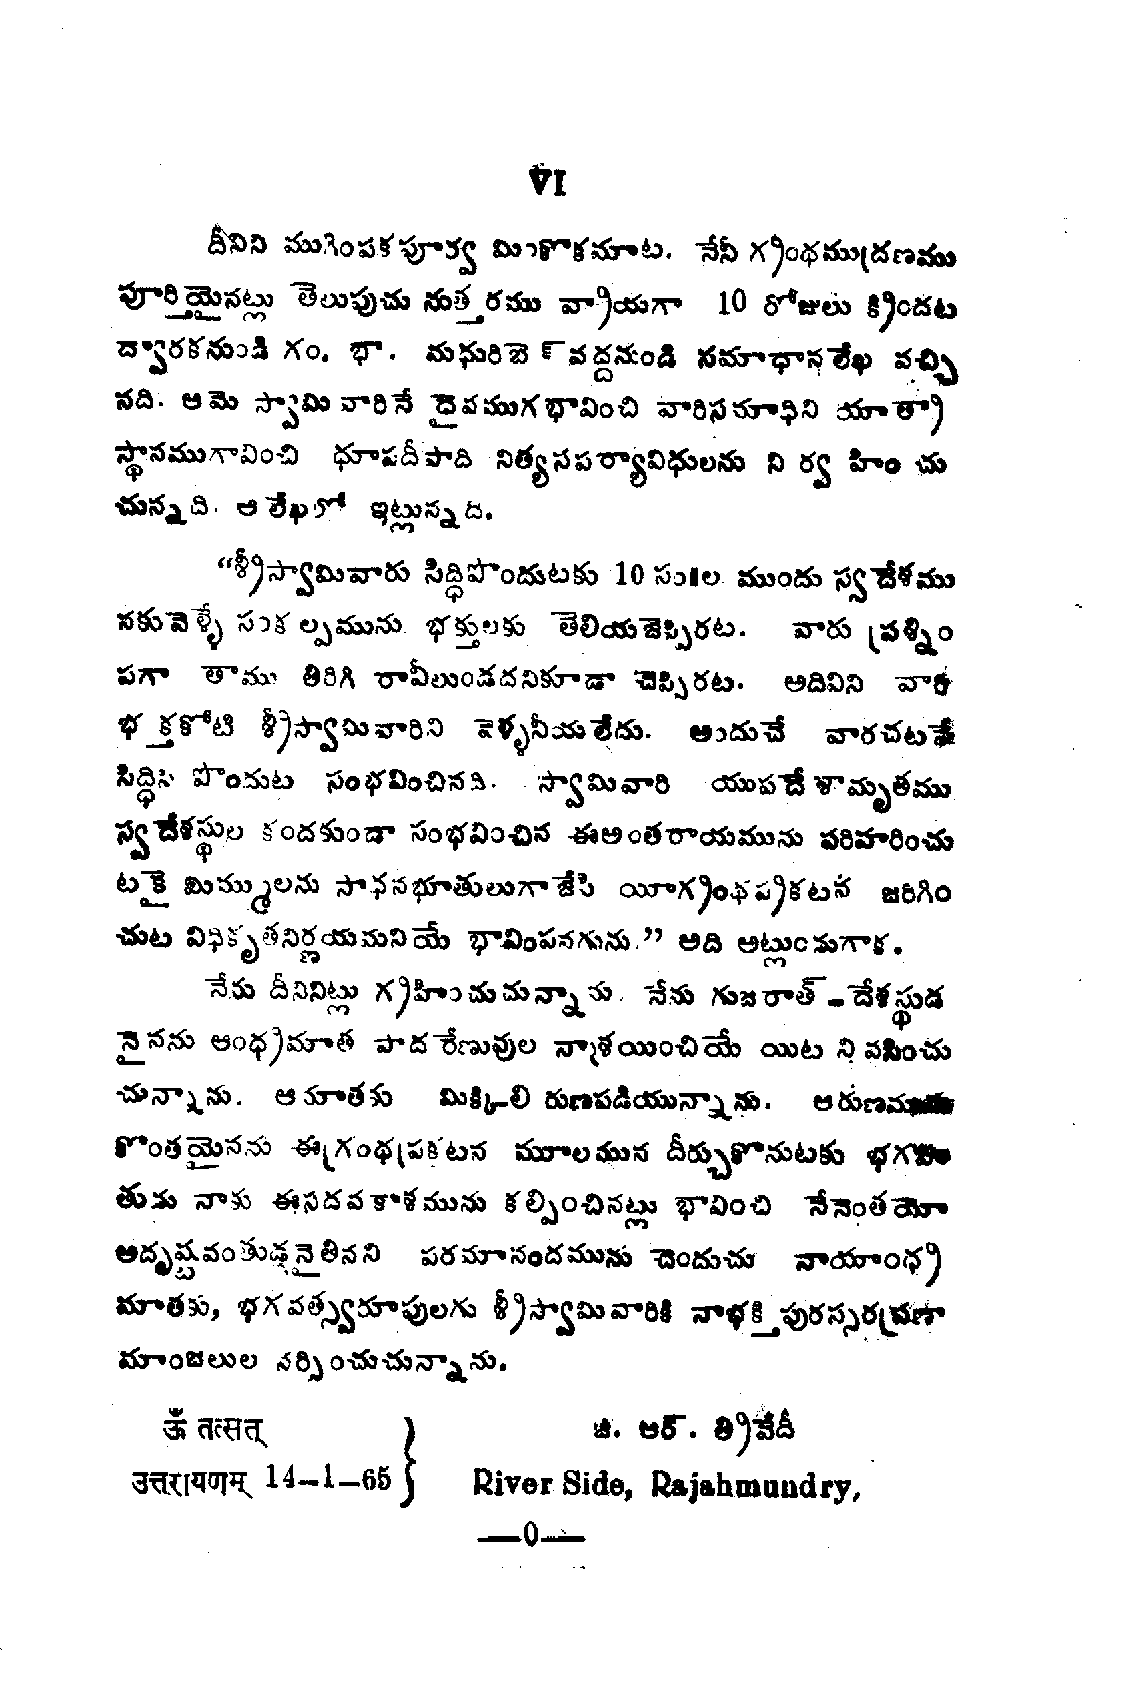 VI
దీనిని ముగింపకపూర్వ మింకొకమాట. నేనీ గ్రంథముద్రణము
పూర్తియైనట్లు తెలుపుచు నుత్తరము వ్రాయగా 10 రోజులు క్రిందట
ద్వారకనుండి గం. భా. మధురిబెన్ వద్దనుండి సమాధానలేఖ వచ్చి
నది. ఆమె స్వామి వారినే దైవముగభావించి వారిసమాధిని యాత్రా
స్థానముగావించి ధూపదీపాది నిత్యసపర్యావిధులను ని ర్వ హిం చు
చున్నది. ఆ లేఖలో ఇట్లున్నది.
“శ్రీస్వామివారు సిద్ధిపొందుటకు 10 సం॥ల ముందు స్వదేశము
నకువెళ్ళే సంకల్పమును భక్తులకు తెలియజెప్పిరట. వారు ప్రశ్నిం
పగా తాము తిరిగి రావీలుండదనికూడా చెప్పిరట. అదివిని వారి
భక్తకోటి శ్రీస్వామివారిని వెళ్ళనీయలేదు. అందుచే వారచటనే
సిద్ధిని పొందుట సంభవించినది. స్వామివారి యుపదేశామృతము
స్వదేశస్థుల కందకుండా సంభవించిన ఈఅంతరాయమును పరిహరించు
టకై మిమ్ములను సాధనభూతులుగాజేసి యీగ్రంథప్రకటన జరిగిం
చుట విధికృతనిర్ణయమనియే భావింపనగును.” అది అట్లుండుగాక.
నేను దీనినిట్లు గ్రహించుచున్నాను. నేను గుజరాత్-దేశస్థుడ
నైనను ఆంధ్రమాత పాదరేణువుల న్నాశయించియే యిట నివసించు
చున్నాను. ఆ మాతకు మిక్కిలి రుణపడియున్నాను. ఆరుణము
కొంతయైనను ఈగ్రంథప్రకటన మూలమున దీర్చుకొనుటకు భగవం
తుడు నాకు ఈసదవకాశమును కల్పించినట్లు భావించి నేనెంతయో
అదృష్టవంతుడనైతినని పరమానందమును చెందుచు నాయాంధ్ర
మాతకు, భగవత్స్వరూపులగు శ్రీస్వామివారికి నాభక్తిపురస్సరప్రణా
మాంజలుల నర్పించుచున్నాను.
ॐ तत्सत्
उत्तरायणम् 14–1–65
జి. ఆర్. త్రివేదీ
River Side, Rajahmundry,
—0—